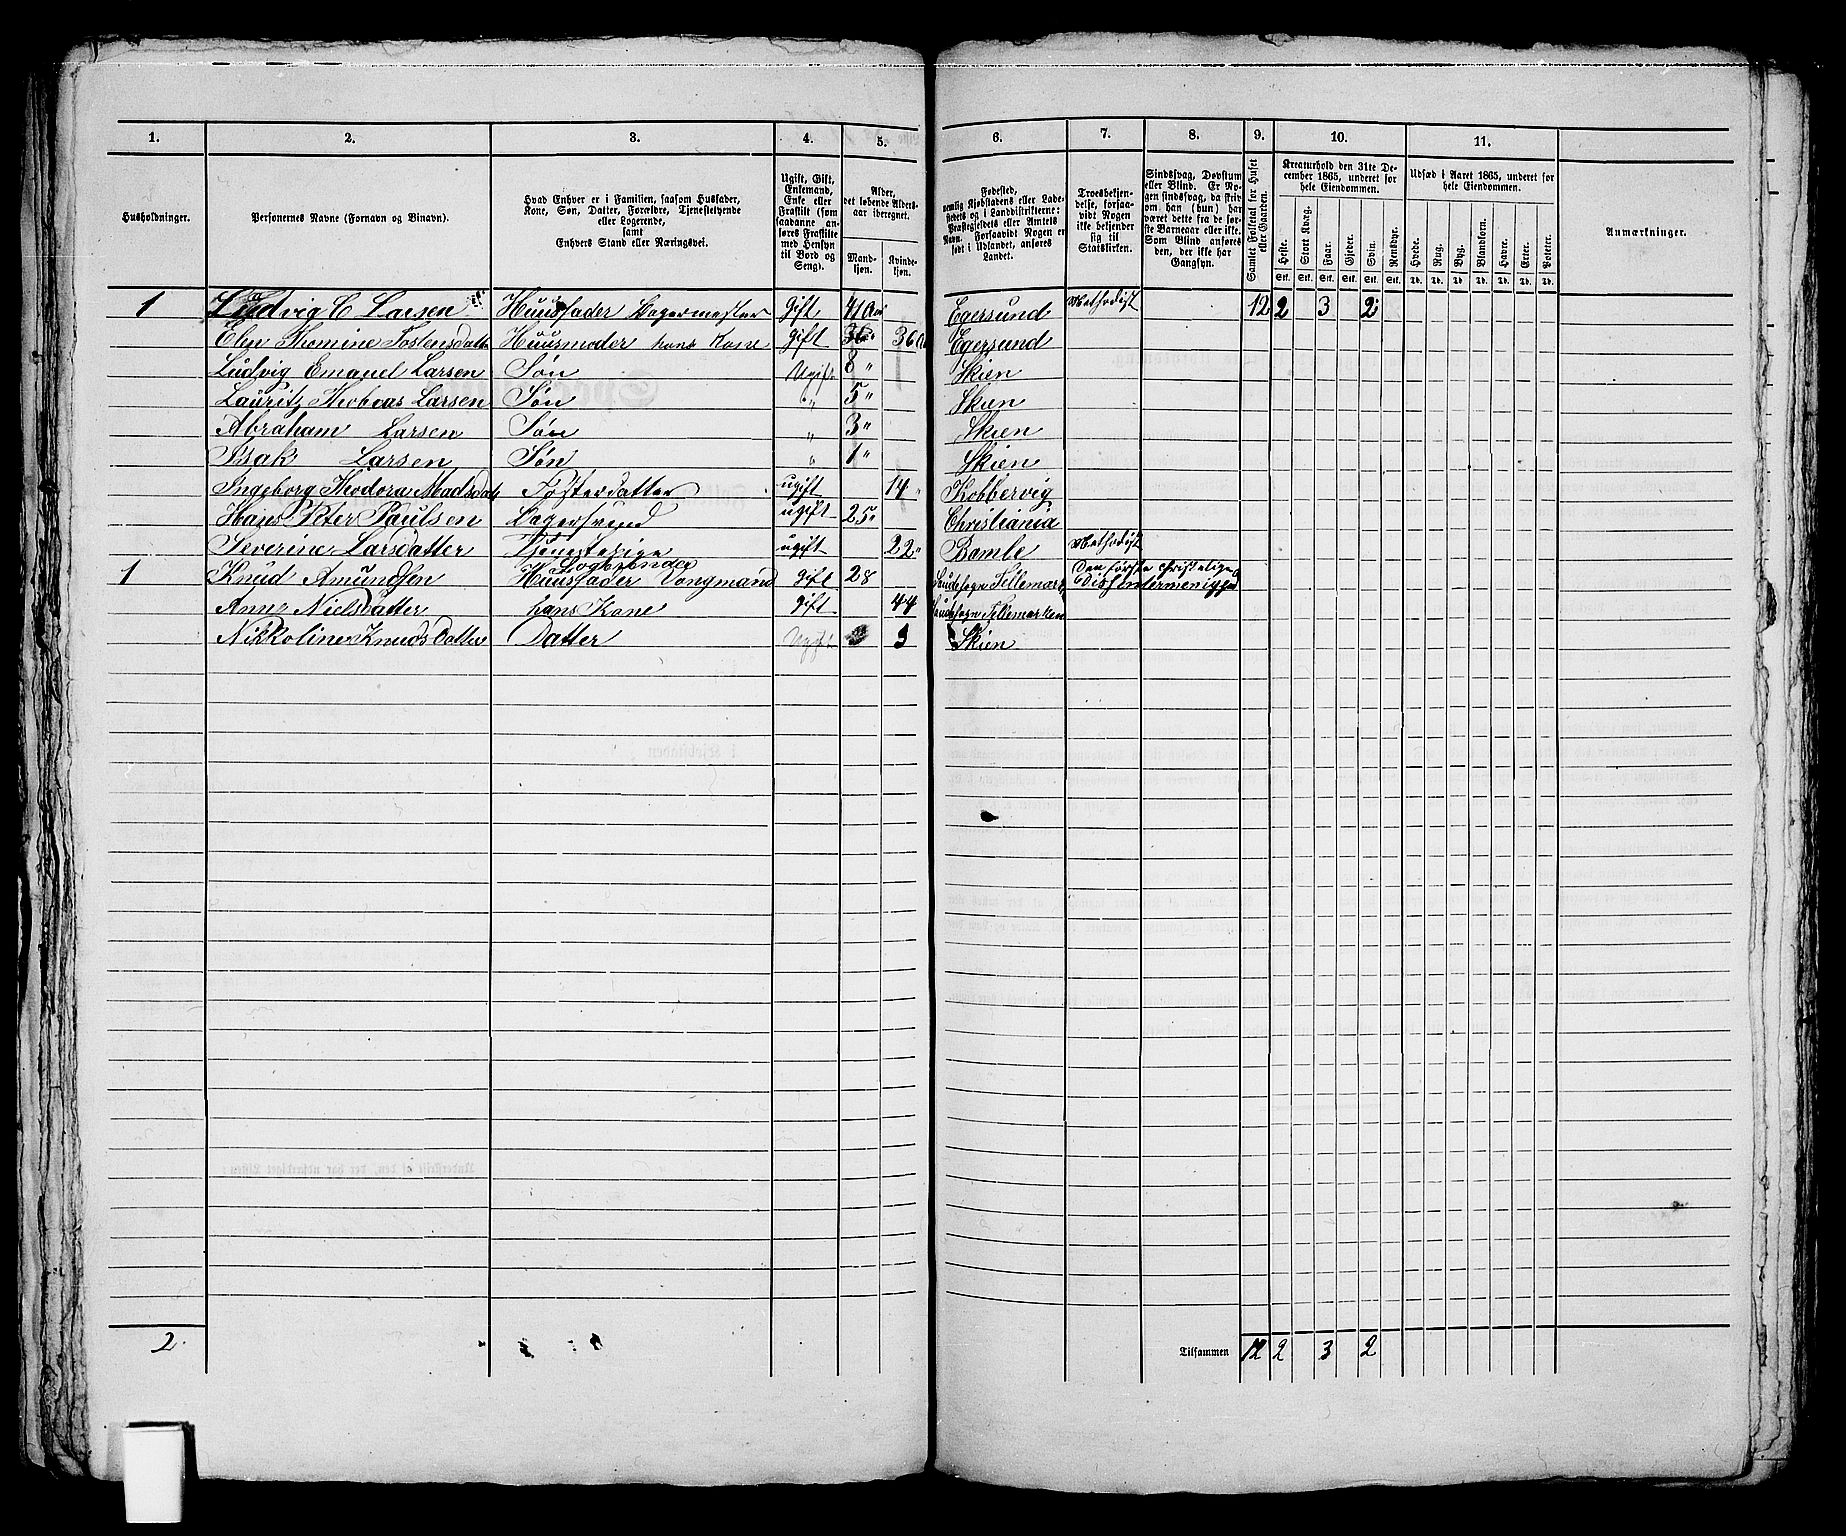 1. 2. 3. 4. 5. 6. 7. 8. 9. 10. 11.
Husholdninger.
Personernes Navne (Fornavn og Binavn).
Hvad Enhver er i Familien, saasom Husfader,
Kone, Søn, Datter, Forældre, Tjenestetyende
eller Logerende,
samt
Enhvers Stand eller Næringsvei.
Ugift, Gift,
Enkemand,
Enke eller
Fraskilt (som
saadanne an-
føres Fraskilte
med Hensyn
til Bord og
Seng).
Alder,
det løbende Alders-
aar iberegnet.
Mand-
kjøn.
Kvinde-
kjøn.
Fødested,
nemlig Kjøbstadens eller Lade-
stedets og i Landdistrikterne:
Præstegjeldets eller Amtets
Navn. Forsaavidt Nogen er
født i Udlandet, anføres
Landet.
Troesbekjen-
delse, forsaa-
vidt Nogen
ikke bekjender
sig til
Statskirken.
Sindssvag, Døvstum
eller Blind. Er No-
gen sindssvag, da skriv
om han (hun) har
været dette fra de før-
ste Barneaar eller ikke.
Som Blind anføres
den, der ikke har
Gangsyn.
Samlet Folketal for Huset
eller Gaarden.
Kreaturhold den 31te De-
cember 1865, underet for
hele Eiendommen.
Heste. Stort Kvæg. Faar. Gjeder. Svin. Rensdyr.
Stk. Stk. Stk. Stk. Stk. Stk.
Udsæd i Aaret 1865, underet for
hele Eiendommen.
Hvede. Rug. Byg. Blandkorn. Havre. Erter. Poteter.
Td. Td. Td. Td. Td. Td. Td.
Anmærkninger.
1 Ludvig C Larsen Huusfader Bagermester Gift 41 Aar Egersund Methodist 12 2 3 2
Elen Thomine Tostensdatter Huusmoder hans Kone gift 36 Egersund
Ludvig Emanuel Larsen Søn Ugift 8 " Skien
Lauritz Larsen Søn " 5 " Skien
Abraham Larsen Søn " 3 " Skien
Isak Larsen Søn " 1 " Skien
Ingeborg Theodora Madsdatt Fosterdatter ugift 14 " Kobbervig
Hans Peter Paulsen Bagersvend ugift 25 " Christiania
Severine Larsdatter Tjenestepige ugift 22 " Bamble Methodist
Logerende
1 Knud Amundsen Huusfader Vongmand Gift 28 Saudesogn Tellemark Den første christelige Dissentermenighed
Anne Nielsdatter hans Kone Gift 44 Tellemarken
Nikkoline Knudsdatter Datter Ugift 3 Skien
2
Tilsammen 12 2 3 2